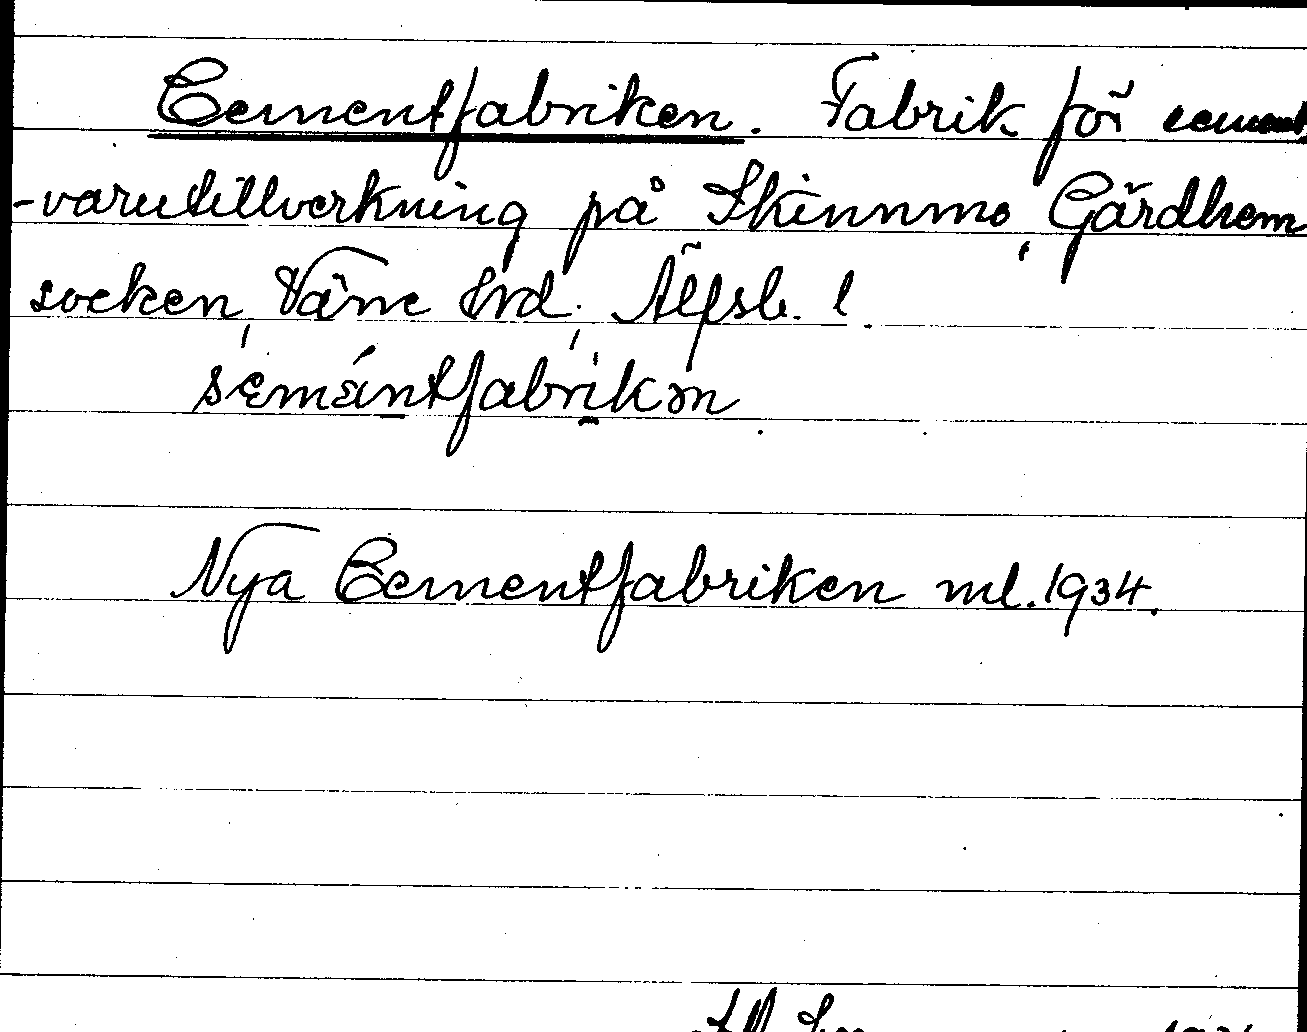 Cementfabriken. Fabrik för cement
-varutillverkning på Skinnmo, Gärdhem
socken, Väne hrd, Älfsb. l.
semántfabrikən
Nya Cementfabriken ml. 1934.